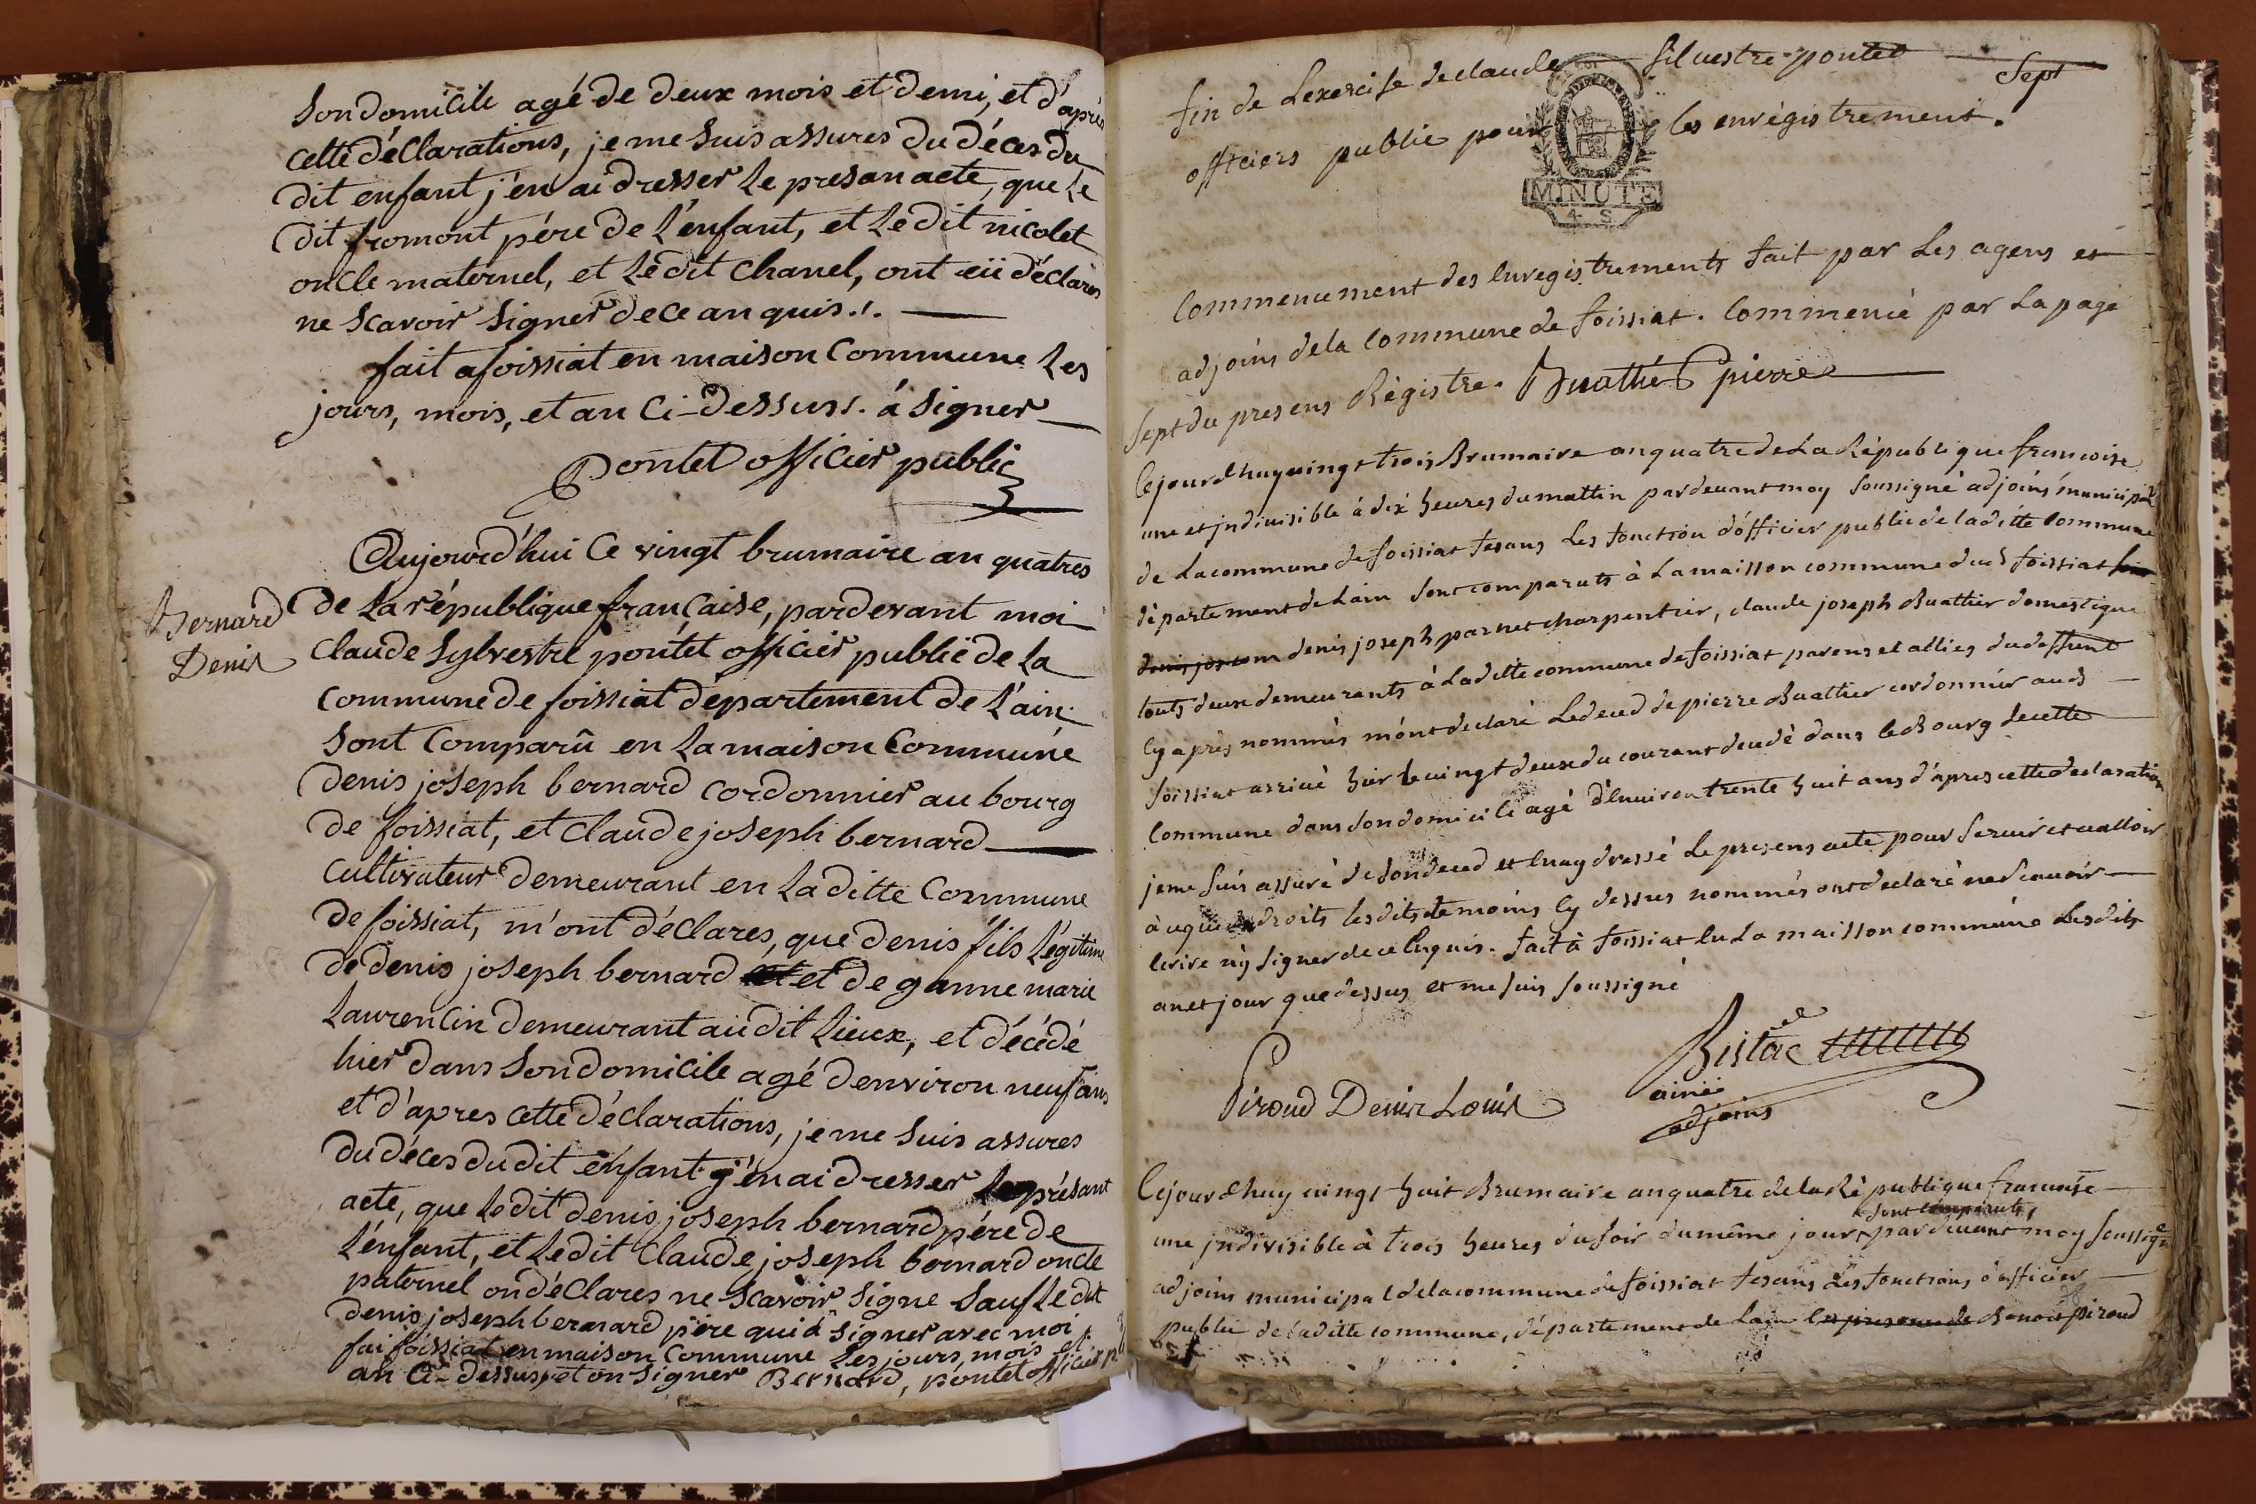 Son domicile agé de deux mois et demi, et d'après
cette déclarations, je me suis assures du déces du
dit enfant j'en ai dresser le presan acte, que le
dit fromont pére de l'enfant, et le dit nicolet
oncle maternel, et le dit Chanel, ont eü déclares
ne Scavoir Signer de ce anquis ./.
fait a foissiat en maison Commune les
jours, mois, et an Ci-dessuss. á Signer
Pontet officier public
Bernard
Denis
Aujourd'hui Ce vingt brumaire an quatres
de la république française, pardevant moi
Claude Sylvestre pontet officier public de la
Commune de foissiat département de l'ain
Sont Comparû en la maison Commune
denis joseph bernard Cordonnier au bourg
de foissiat, et Claude joseph bernard
Cultivateur demeurant en la ditte Commune
de foissiat, m'ont déclares, que denis fils légitime
de denis joseph bernard et et de ganne marie
Laurencin demeurant au dit Lieux, et décédé
hier dans Son domicile agé denviron neuf ans
et d'apres cette déclarations, je me Suis assures
du déces du dit enfant j'en ai dresser le présant
acte, que le dit denis joseph bernard pére de
l'énfant, et le dit Claude joseph bernard oncle
paternel on déclares ne Scavoir Signe Sauf le dit
denis joseph bernard pére qui á Signer avec moi
fai foissiat en maison Commune les jours, mois et
an Ci-dessus, et on Signer Bernard, pontet officier p
fin de Lexercise de claude Siluestre pontet Sept
officiers public pour les enrégistrement.
MINUTE
4. S
Commencement des Enregistrements fait par Les agens et
adjoins de la Commune de foissiat. Commencé par La page
Sept du presens Régistre. Buathier pierre
Cejourdhuy vingt trois Brumaire an quatre de La République francoise
une et jndiuisible á dix heures du mattin pardeuant moy Soussigné adjoins municipal
de La commune de foissiat fesans Les fonction dófficier public de ladite Commune
département de Lain Sont comparuts á La maisson commune dud foissiat
denis joseph parnet charpentier, claude joseph Buathier domestique
touts deux demeurants á Laditte commune de foissiat parens et allies du deffunt
Cy aprés nommés mónt declaré Le deced de pierre Buathier cordonnier aud
foissiat arriué hier le vingt deux du courant decedé dans le Bourg de cette
Commune dans Son domicile agé dEnuiron trente huit ans d'apres cette declaration
je me Suis assuré de Son deced et Enay dressé Le presens acte pour Seruir et valloir
á ce que de droits les dits temoins Cy dessus nommés ont declaré ne Scauoir
Ecrire ny Signer de ce Enquis. fait á foissiat En La maisson commune Lesdits
an et jour que dessus et me Suis Soussigné
Piroud Denis Louis
ainé
adjoins
Cejourdhuy vingt huit Brumaire an quatre de la République francoise
Sont Comparuts
une jndivisible á trois heures du soir du même jour pardeuant moy Soussigné
adjoins municipal de la commune de foissiat fesans Les fonctions d'officier
public de laditte commune, département de Lain Benoit piroud